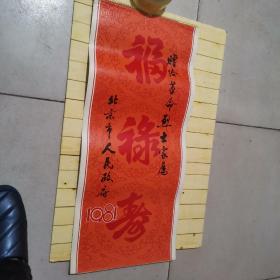 福禄寿
赠给革命烈士家属
北京市人民政府
1981